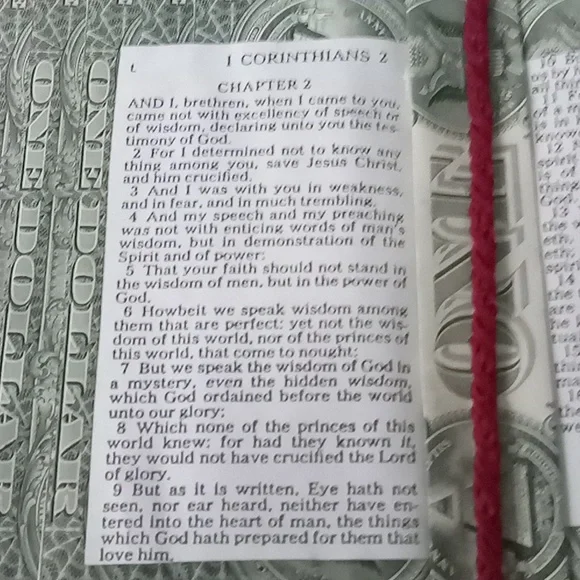 1 CORINTHIANS 2
CHAPTER 2
AND I, brethren, when I came to you,
came not with excellency of speech or
of wisdom, declaring unto you the tes-
timony of God.
2 For I determined not to know any
thing among you, save Jesus Christ,
and him crucified.
3 And I was with you in weakness,
and in fear, and in much trembling.
4 And my speech and my preaching
was not with enticing words of man's
wisdom, but in demonstration of the
Spirit and of power:
5 That your faith should not stand in
the wisdom of men, but in the power of
God.
6 Howbeit we speak wisdom among
them that are perfect: yet not the wis-
dom of this world, nor of the princes of
this world, that come to nought:
7 But we speak the wisdom of God in
a mystery, even the hidden wisdom,
which God ordained before the world
unto our glory:
8 Which none of the princes of this
world knew: for had they known it,
they would not have crucified the Lord
of glory.
9 But as it is written, Eye hath not
seen, nor ear heard, neither have en-
tered into the heart of man, the things
which God hath prepared for them that
love him.
ONE DOLLAR
ONE DOLLAR
ONE